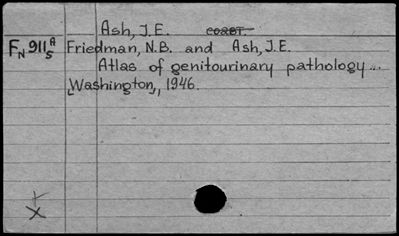 Ash, J.E. COAST.
FN 911 A5 Friedman, N.B. and Ash, J.E.
Atlas of genitourinary pathology...
[Washington], 1946.
X